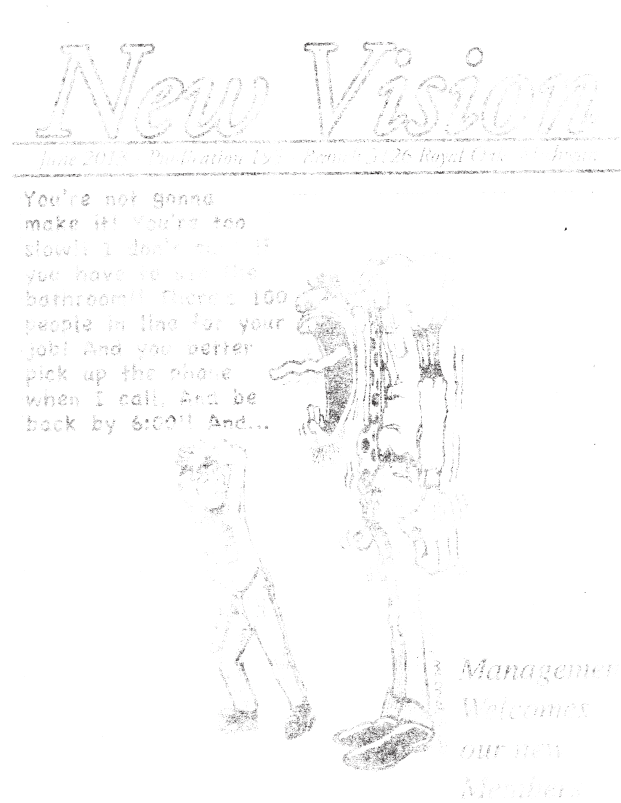 New Vision
June Publication Royal
You're not gonna
make it! You're too
slow!! I don't
you have to the
bathroom!! There's 100
people in line for your
job! And you better
pick up the phone
when I call. And be
back by 6:00!! And...
Management
Welcomes
our new
Members